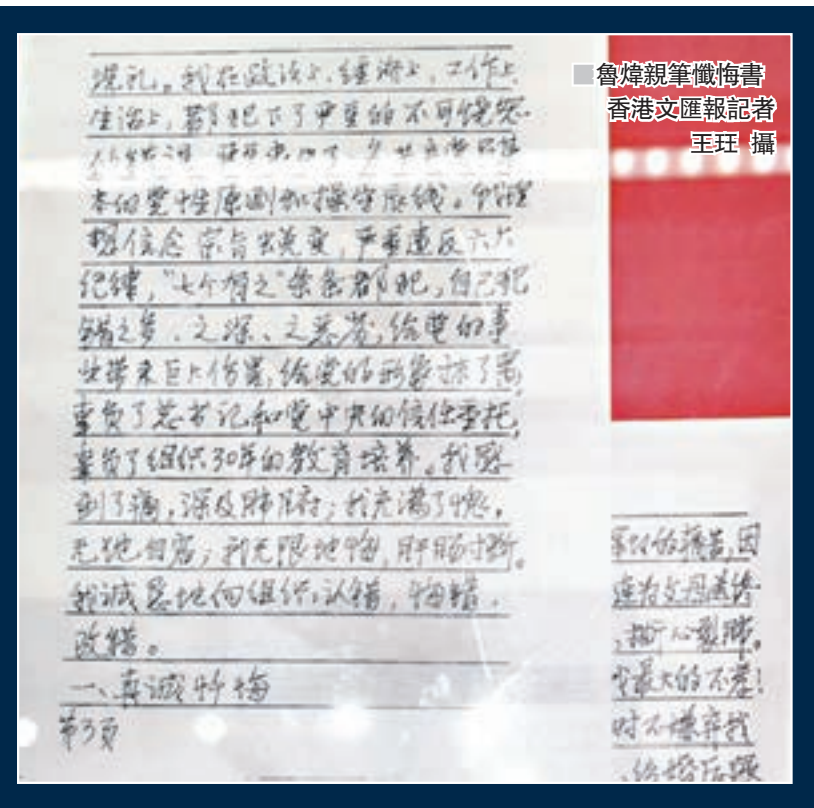 魯煒親筆懺悔書
香港文匯報記者
王玨 攝
洗礼。我在政治上、经济上、工作上、
生活上，都犯下了严重的不可饶恕
本的党性原则和操守底线。个人理
想信念宗旨出蜕变，严重违反六大
纪律，“七个有之”条条都犯，自己犯
错之多、之深、之恶劣，给党的事
业带来巨大伤害，给党的形象抹了黑，
辜负了总书记和党中央的信任重托，
辜负了组织30年的教育培养。我感
到了痛，深及肺腑；我充满了愧，
无地自容；我无限地悔，肝肠寸断。
我诚恳地向组织认错，悔错，
改错。
一、真诚忏悔
第3页
痛苦，因
为父母
，撕心裂肺。
最大的不孝！
时不嫌弃我
，给婚后